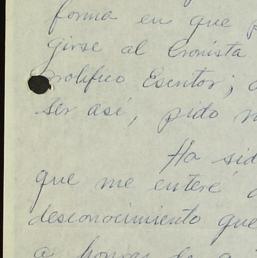 forma en que p
girse al Cronista
prolífico Escritor; 
ser así, pido 
Ha sid
que me enteré
desconocimiento que
a honrar